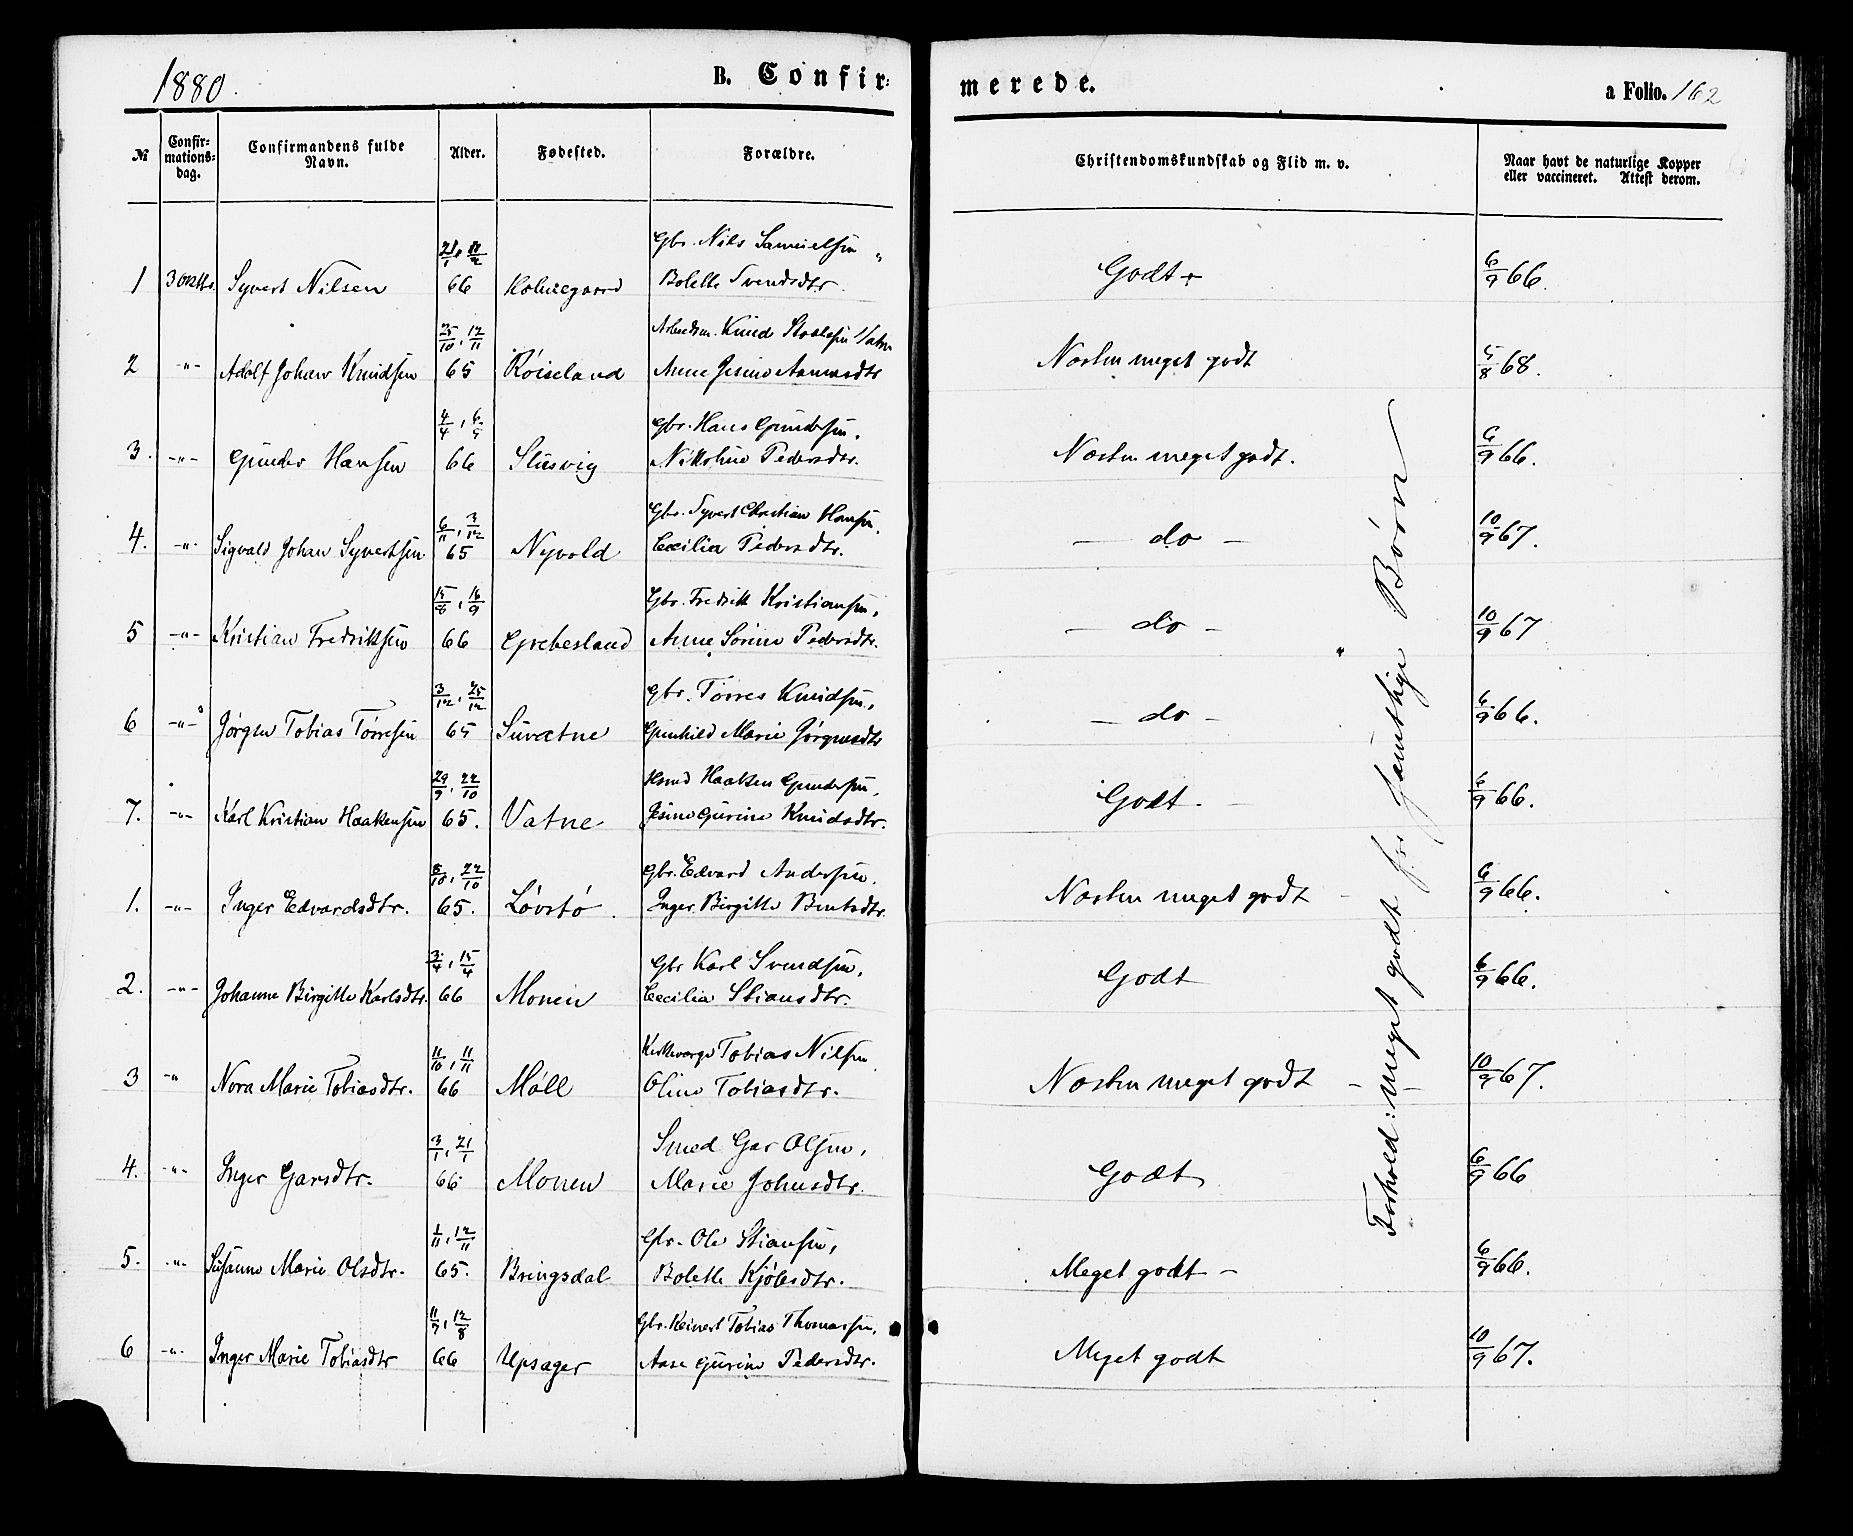 1880.
B. Confir-
merede.
a Folio. 162
№
Confir-
mations-
dag.
Confirmandens fulde
Navn.
Alder.
Fødested.
Forældre.
Christendomskundskab og Flid m. v.
Naar havt de naturlige Kopper
eller vaccineret. Attest derom.
21/1, 11/2 Gbr. Nils Samuelsen,
1 3 Oktbr. Syvert Nilsen 66 Bolette Svendsdtr. Godt 6/9 66.
25/10, 12/11 Arbeidsm. Knud
2 -"- Adolf Johan Knudsen 65 Røiseland Anne Gesine Aanensdtr Næsten meget godt 5/8 68.
4/4, 6/5 Gbr. Hans Gundersen,
3. -"- Gunder Hansen 66 Slusvig Nikoline Pedersdtr. Næsten meget godt. 6/9 66.
6/11, 3/12 Gbr. Syvert Christian Hansen,
4. -"- Sigvald Johan Syvertsen 65 Nyvold Cecilia Pedersdtr. — do — 10/9 67.
15/8, 16/9 Gbr. Fredrik Kristiansen,
5 -"- Kristian Fredriksen 66 Grebesland Anne Sorine Pedersdtr. — do — 10/9 67
3/12, 25/12 Gbr. Torres Knudsen,
6 -"- Jørgen Tobias Torresen 65 Suvatne Gunhild Marie Jørgensdtr — do — 6/9 66.
29/9, 22/10 Hsmd Haaken Gundersen,
7. -"- Karl Kristian Haakensen 65. Vatne Gesine Gurine Knudsdtr. Godt. 6/9 66.
8/10, 22/10 Gbr. Edvard Andersen.
1. -"- Inger Edvardsdtr. 65. Løvstø. Inger Birgitte Bentsdtr. Næsten meget godt 6/9 66.
3/4, 15/4 Gbr Karl Svendsen,
2. -"- Johanne Birgitte Karlsdtr. 66 Monen Cecilia Stiansdtr. Godt 6/9 66.
11/10, 11/11 Kirkeværge Tobias Nilsen
3 -"- Nora Marie Tobiasdtr. 66 Møll Oline Tobiasdtr. Næsten meget godt 10/9 67.
3/1, 21/1 Smed Gar Olsen,
4. -"- Inger Garsdtr. 66 Monen Marie Johnsdtr. Godt 6/9 66
1/11, 12/11 Gbr. Ole Stiansen,
5. -"- Susanne Marie Olsdtr. 65. Bringsdal Bolette Kjølsdtr. Meget godt — 6/9 66.
11/7, 12/8 Gbr. Reinert Tobias Thomassen,
6 -"- Inger Marie Tobiasdtr 66 Upsager Aase Gurine Pedersdtr. Meget godt 10/9 67.
Forhold: meget godt for samtlige Børn